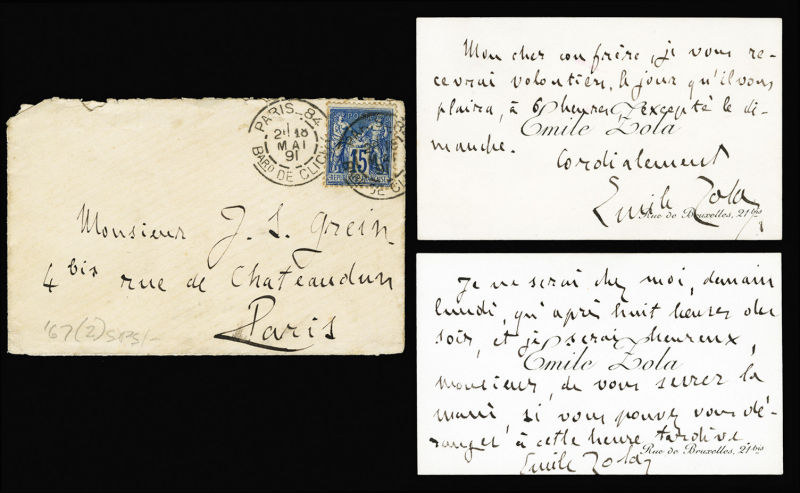 PARIS_84
2E 18
MAI
91
BARD DE CLICHY
15
Monsieur J. S. Grein
4 bis rue de Chateaudun
Paris
'67(2)
Mon cher confrère, je vous re-
cevrai volontiers, le jour qu'il vous
plaira, à 6 heures, excepté le di-
Emile Zola
manche.
Cordialement
Emile Zola
Rue de Bruxelles, 21 bis
Je ne serai chez moi, demain
lundi, qu'après huit heures du
soir, et je serai heureux,
Emile Zola
monsieur, de vous serrer la
main si vous pouvez vous dé-
ranger à cette heure tardive.
Rue de Bruxelles, 21 bis
Emile Zola